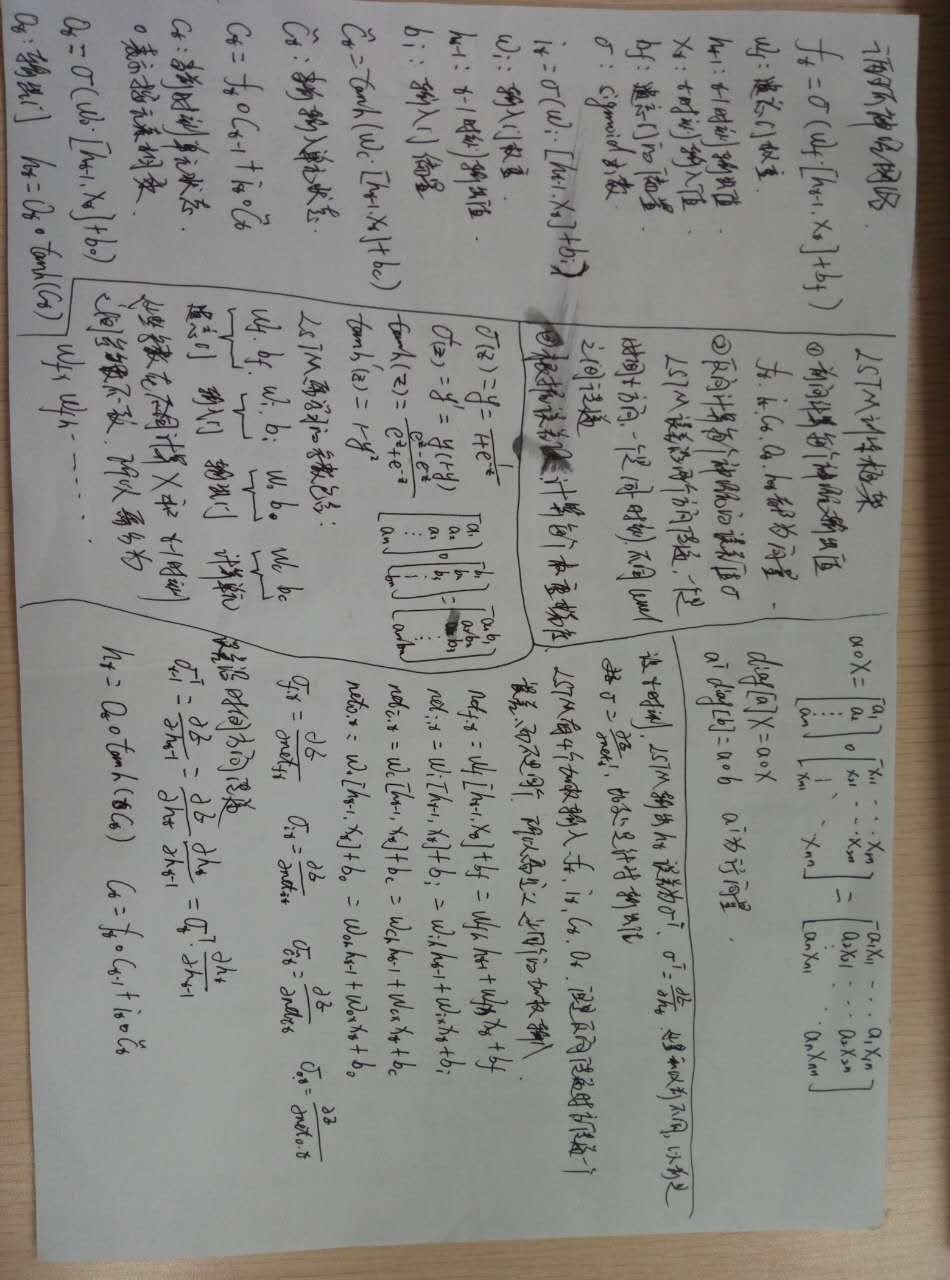 循环神经网络
f_t = σ(W_f·[h_{t-1}, X_t] + b_f)
W_f: 遗忘门权重
h_{t-1}: t-1时刻输出值
X_t: t时刻输入值
b_f: 遗忘门的偏置
σ: sigmoid函数
i_t = σ(W_i·[h_{t-1}, X_t] + b_i)
W_i: 输入门权重
h_{t-1}: t-1时刻输出值
b_i: 输入门偏置
C̃_t = tanh(W_c·[h_{t-1}, X_t] + b_c)
C̃_t: 当前输入单元状态
C_t = f_t∘C_{t-1} + i_t∘C̃_t
C_t: 当前时刻单元状态
∘表示按元素相乘
O_t = σ(W_o·[h_{t-1}, X_t] + b_o)
O_t: 输出门 h_t = O_t∘tanh(C_t)
LSTM训练框架
① 前向计算每个神经元输出值
f_t, i_t, C_t, O_t, h_t都为向量
② 反向计算每个神经元的误差值σ
LSTM误差沿两个方向传递,一个是
时间t方向,一个是同时刻,不同level
之间传递
③ 根据误差,计算每个权重梯度
σ(z) = y = 1/(1+e^{-z})
σ'(z) = y' = y(1-y)
tanh(z) = (e^z - e^{-z})/(e^z + e^{-z})
tanh'(z) = 1-y²
[a_1 a_2 a_3 ⋮ a_n]∘[b_1 b_2 b_3 ⋮ b_n] = [a_1b_1 a_2b_2 a_3b_3 ⋮ a_nb_n]
LSTM需学习的参数包含:
W_f, b_f, W_i, b_i W_o b_o W_c b_c
遗忘门 输入门 输出门 计算单元
这些参数在不同计算X和t-1时刻
之间参数不一致,所以需分为
W_{fx} W_{fh} ……
a∘X = [a_1 a_2 ⋮ a_n]∘[x_{11} … x_{1n} x_{21} … x_{2n} ⋮ x_{n1} x_{nn}] = [a_1x_{11} … a_1x_{1n} a_2x_{21} … a_2x_{2n} ⋮ a_nx_{n1} a_nx_{nn}]
diag[a]X = a∘X
a^T diag[b] = a∘b a^T为行向量
设t时刻,LSTM输出h_t误差为σ^T, σ^T = ∂E/∂h_t 这里和以前不同,以前是
σ = ∂E/∂net, 此处是针对输出值
LSTM有4个加权输入 f_t, i_t, C_t, O_t, 但是反向传递时方传递一个
误差,而不是四个,所以需定义这四个的加权输入
net_{f,t} = W_f[h_{t-1}, X_t] + b_f = W_{fh}h_{t-1} + W_{fx}X_t + b_f
net_{i,t} = W_i[h_{t-1}, X_t] + b_i = W_{ih}h_{t-1} + W_{ix}X_t + b_i
net_{c̃,t} = W_c[h_{t-1}, X_t] + b_c = W_{ch}h_{t-1} + W_{cx}X_t + b_c
net_{o,t} = W_o[h_{t-1}, X_t] + b_o = W_{oh}h_{t-1} + W_{ox}X_t + b_o
σ_{f,t} = ∂E/∂net_{f,t} σ_{i,t} = ∂E/∂net_{i,t} σ_{c̃,t} = ∂E/∂net_{c̃,t} σ_{o,t} = ∂E/∂net_{o,t}
误差沿时间方向传递
σ^T_{t-1} = ∂E/∂h_{t-1} = ∂E/∂h_t ∂h_t/∂h_{t-1} = σ_t^T·∂h_t/∂h_{t-1}
h_t = O_t∘tanh(C_t) C_t = f_t∘C_{t-1} + i_t∘C̃_t